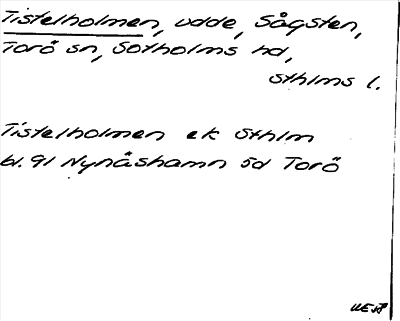 Tistelholmen, udde, Sågsten,
Torö sn, Sotholms hd,
Sthlms l.
Tistelholmen ek Sthlm
bl. 91 Nynäshamn 5d Torö